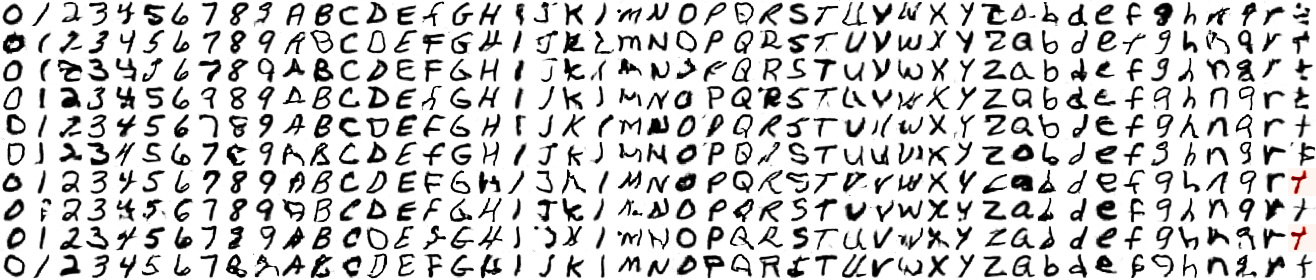 0 1 2 3 4 5 6 7 8 9 A B C D E f G H I J K l M N O P Q R S T U V W X Y Z a b d e f g h n q r t
0 1 2 3 4 5 6 7 8 9 A B C D E F G H I J K L M N O P Q R S T U V W X Y Z a b d e f g h n q r t
0 1 2 3 4 5 6 7 8 9 A B C D E F G H I J K l M N O P Q R S T U V W X Y Z a b d e f g h n q r t
0 1 2 3 4 5 6 7 8 9 A B C D E f G H I J K l M N O P Q R S T U V W X Y Z a b d e f g h n q r t
0 1 2 3 4 5 6 7 8 9 A B C D E f G H I J K l M N O P Q R S T U V W X Y Z a b d e f g h n q r t
0 1 2 3 4 5 6 7 8 9 A B C D E f G H I J K l M N O P Q R S T U V W X Y Z a b d e f g h n q r t
0 1 2 3 4 5 6 7 8 9 A B C D E F G H I J K l M N O P Q R S T U V W X Y Z a b d e f g h n q r t
0 1 2 3 4 5 6 7 8 9 A B C D E f G H I J K l M N O P Q R S T U V W X Y Z a b d e f g h n q r t
0 1 2 3 4 5 6 7 8 9 A B C D E F G H I J K l M N O P Q R S T U V W X Y Z a b d e f g h n q r t
0 1 2 3 4 5 6 7 8 9 A B C D E F G H I J K l M N O P Q R S T U V W X Y Z a b d e f g h n q r t